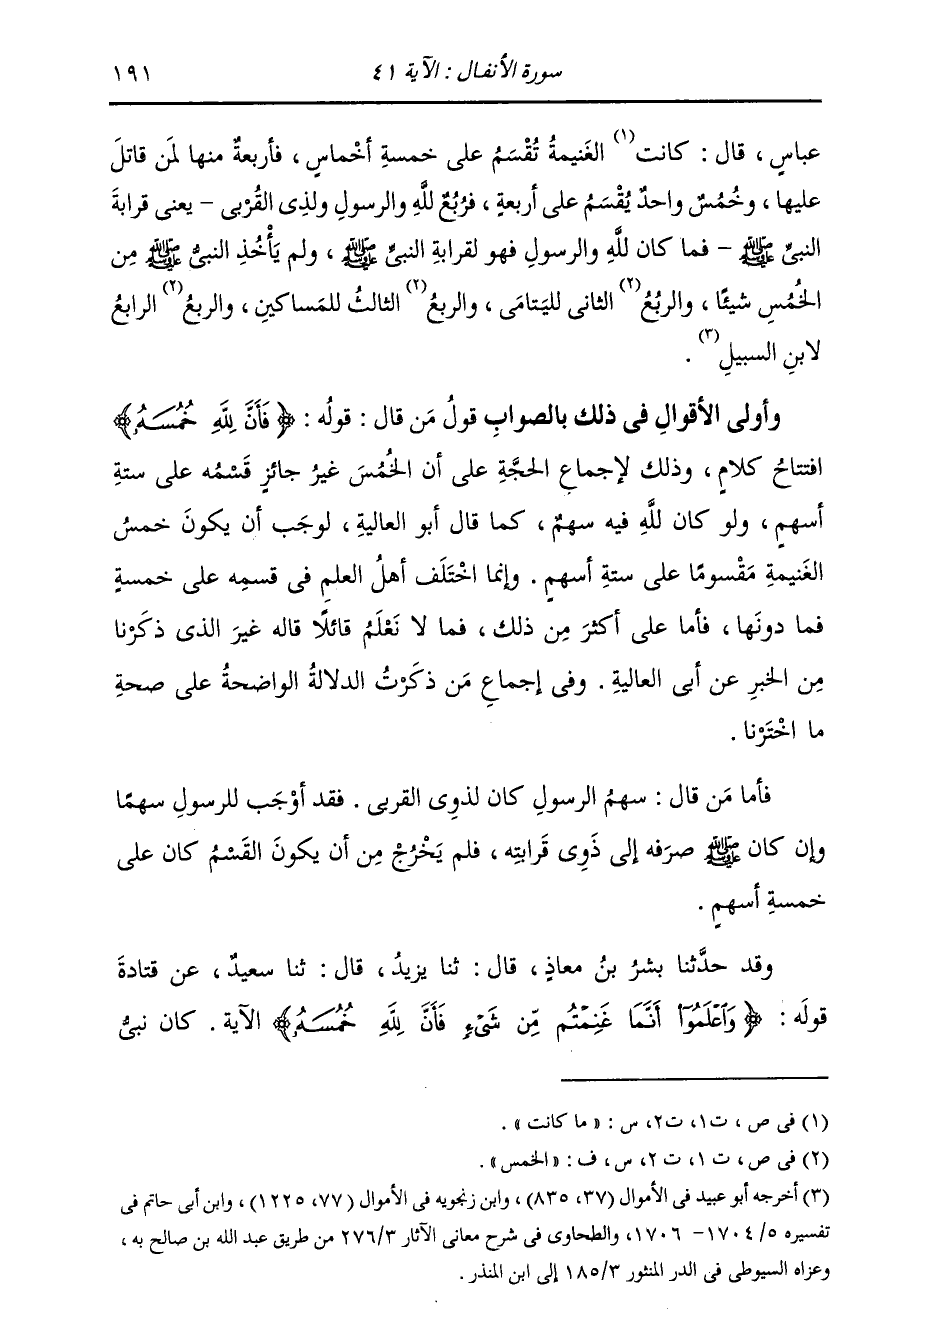 سورة الأنفال : الآية ٤١ ١٩١
عباسٍ ، قال : كانت(١) الغَنيمةُ تُقْسَمُ على خمسةِ أخْماسٍ ، فأربعةٌ منها لمَن قاتلَ
عليها ، وخُمُسٌ واحدٌ يُقْسَمُ على أربعةٍ ، فرُبُعٌ للَّهِ والرسولِ ولذِى القُرْبى – يعنى قرابةَ
النبىِّ ﷺ – فما كان للَّهِ والرسولِ فهو لقرابةِ النبىِّ ﷺ ، ولم يَأْخُذِ النبىُّ ﷺ مِن
الخُمُسِ شيئًا ، والرُّبُعُ(٢) الثانى لليَتامَى ، والربعُ(٢) الثالثُ للمَساكينِ ، والربعُ(٢) الرابعُ
لابنِ السبيلِ(٣) .
وأولى الأقوالِ فى ذلك بالصوابِ قولُ مَن قال : قولُه : ﴿ فَأَنَّ لِلَّهِ خُمُسَهُۥ ﴾
افتتاحُ كلامٍ ، وذلك لإجماعِ الحجَّةِ على أن الخُمُسَ غيرُ جائزٍ قَسْمُه على ستةِ
أسهمٍ ، ولو كان للَّهِ فيه سهمٌ ، كما قال أبو العاليةِ ، لوجَب أن يكونَ خمسُ
الغَنيمةِ مَقْسومًا على ستةِ أسهمٍ . وإنما اخْتَلَف أهلُ العلمِ فى قسمِه على خمسةٍ
فما دونَها ، فأما على أكثرَ مِن ذلك ، فما لا نَعْلَمُ قائلًا قاله غيرَ الذى ذكَرْنا
مِن الخبرِ عن أبى العاليةِ . وفى إجماعِ مَن ذكَرْتُ الدلالةُ الواضحةُ على صحةِ
ما اخْتَرْنا .
فأما مَن قال : سهمُ الرسولِ كان لذوِى القربى . فقد أوْجَب للرسولِ سهمًا
وإن كان ﷺ صرَفه إلى ذَوِى قَرابتِه ، فلم يَخْرُجْ مِن أن يكونَ القَسْمُ كان على
خمسةِ أسهمٍ .
وقد حدَّثنا بشرُ بنُ معاذٍ ، قال : ثنا يزيدُ ، قال : ثنا سعيدٌ ، عن قتادةَ
قولَه : ﴿ وَٱعْلَمُوٓا۟ أَنَّمَا غَنِمْتُم مِّن شَىْءٍ فَأَنَّ لِلَّهِ خُمُسَهُۥ ﴾ الآية . كان نبىُّ
(١) فى ص ، ت١، ت٢، س : « ما كانت » .
(٢) فى ص ، ت ١، ت ٢، س ، ف : « الخمس » .
(٣) أخرجه أبو عبيد فى الأموال (٣٧، ٨٣٥) ، وابن زنجويه فى الأموال (٧٧، ١٢٢٥) ، وابن أبى حاتم فى
تفسيره ٥/ ١٧٠٤ – ١٧٠٦، والطحاوى فى شرح معانى الآثار ٢٧٦/٣ من طريق عبد الله بن صالح به ،
وعزاه السيوطى فى الدر المنثور ١٨٥/٣ إلى ابن المنذر .